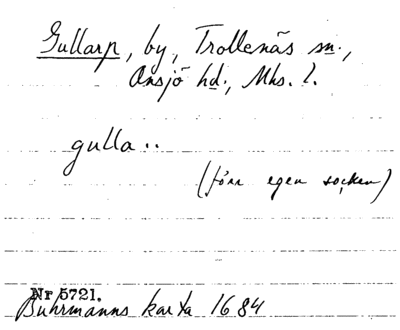 Gullarp, by, Trollenäs sn.,
Onsjö hd., Mhs. l.
gulla..
(förr egen socken)
Nr 5721.
Buhrmanns karta 1684